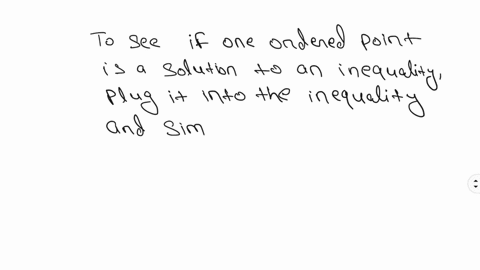 To see if one ordered point
is a solution to an inequality,
plug it into the inequality
and sim